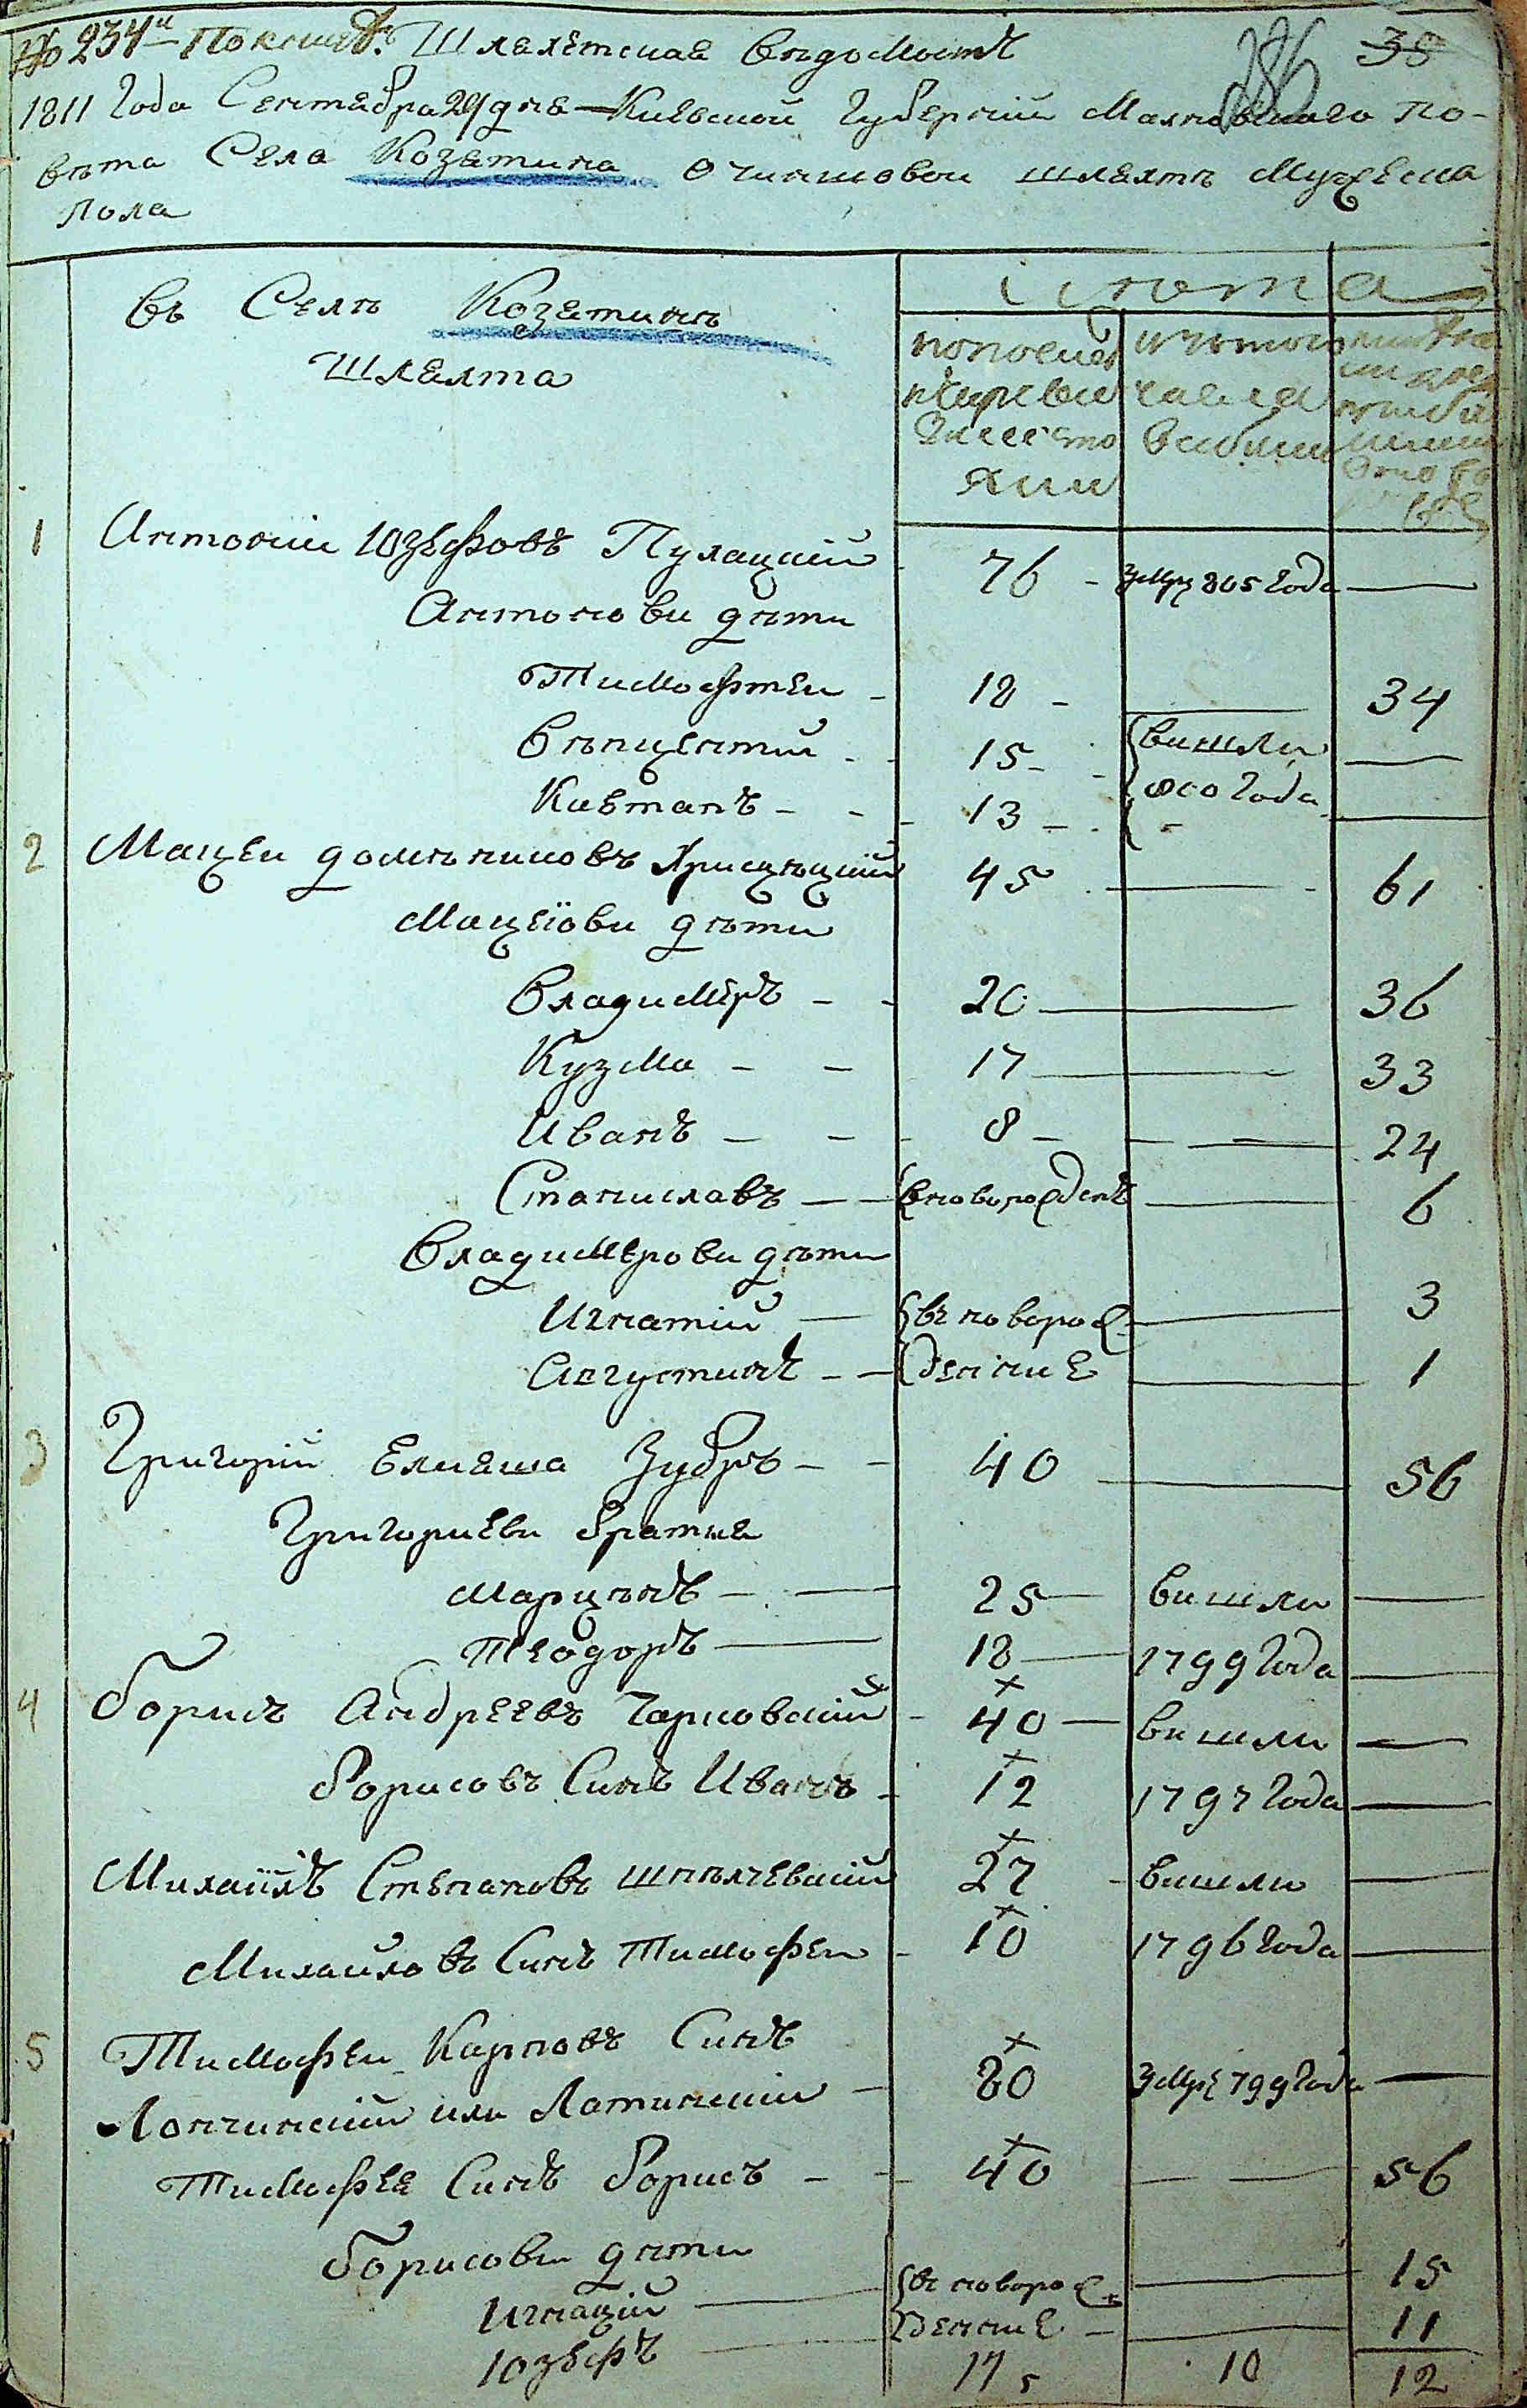 № 234й Шляхетская вѣдомость 286 38
1811 Года Сентября 29 дня Киевской Губернии Махновского по-
вѣта Села Козятина о чиншовои шляхтѣ мужеска
пола
въ Селѣ Козятинѣ
Шляхта
лѣта
1 Антоній Юзефовъ Пулацкій 76 умре 805 Года —
Антонови дѣти
Тимофтеи 18 — 34
Вѣнцентій 15 вишли —
Каетанъ 13 800 Года —
2 Мацеи домѣниковъ 45 — 61
Мацеіови дѣти
Владимѣръ 20 — 36
Кузма 17 — 33
Иванъ 8 — 24
Станиславъ вноворожденъ — 6
Владимѣрови дѣти
Игнатій въ новорож- — 3
Августинъ деніие — 1
3 Григорій Елияша Зубръ 40 — 56
Григориеви братия
Марцѣнъ 25 вишли —
Теодоръ 18 1799 Года —
4 Борисъ Андреевъ Чарновскій 40 вишли —
Борисовъ Синъ Иванъ 12 1797 Года —
Михаийлъ Степановъ 27 вишли —
Михайловъ Синъ Тимофеи 10 1796 Года —
5 Тимофеи Карповъ Синъ
Лончинскій или Латинскій 80 умре 799 Года —
Тимофея Синъ Борисъ 40 — 56
Борисови дѣти
Игнацій въ новорож- — 15
Юзефъ дение — 11
17 10 12